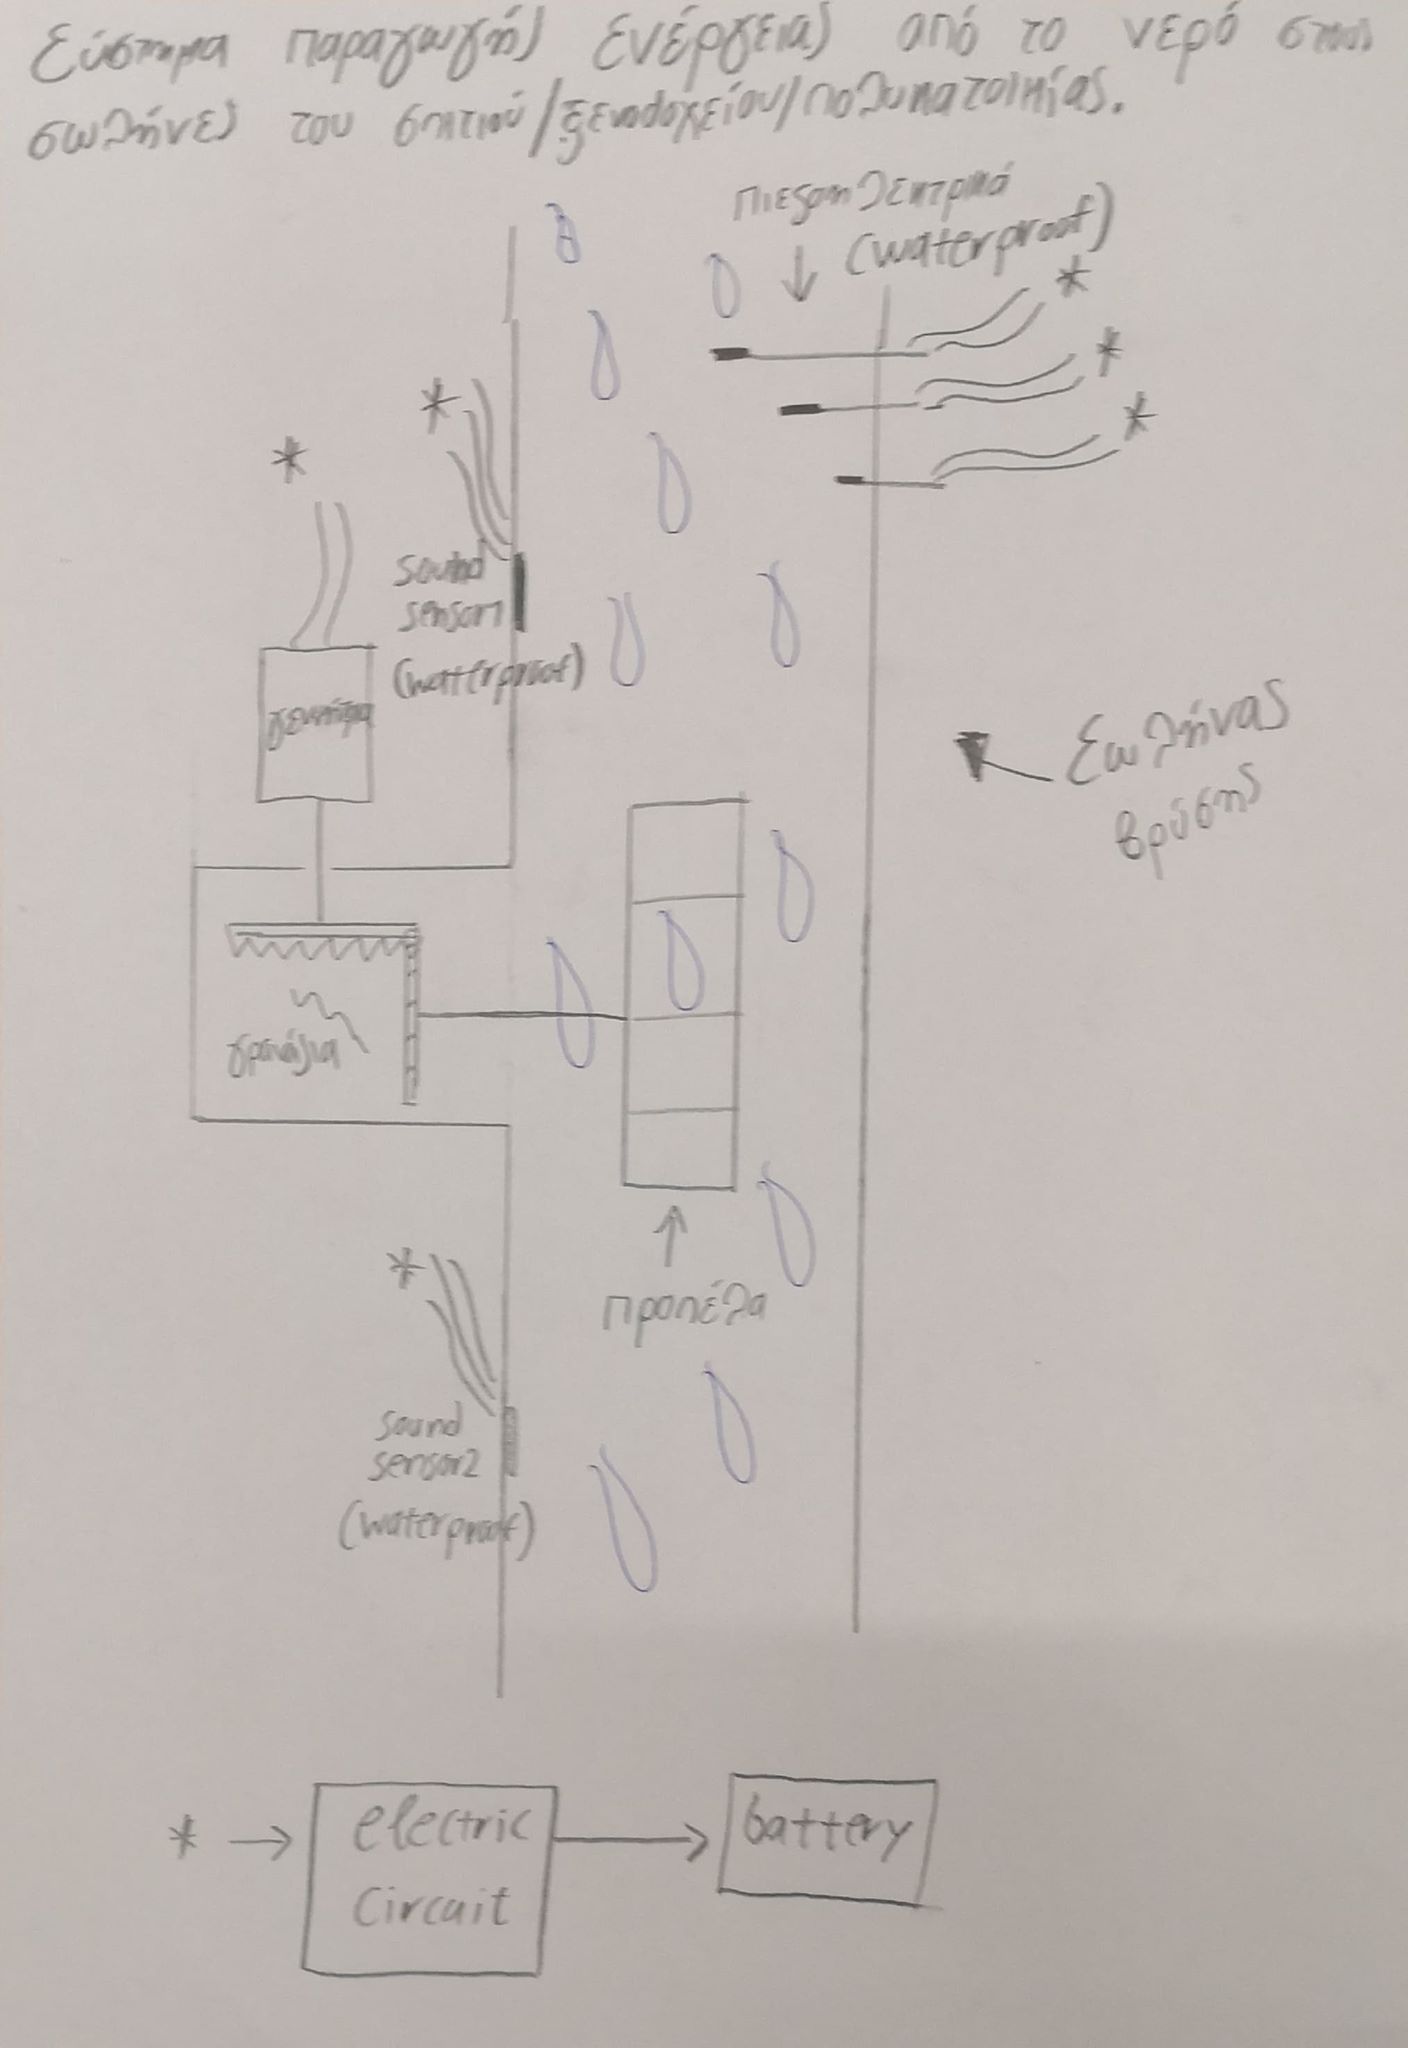 Σύστημα παραγωγής ενέργειας από το νερό στους
σωλήνες του σπιτιού/ξενοδοχείου/πολυκατοικίας.
πιεζοηλεκτρικά
(waterproof)
*
*
*
*
*
sound
sensor1
(waterproof)
γεννήτρια
Σωλήνας
βρύσης
γρανάζια
*
προπέλα
sound
sensor2
(waterproof)
* → electric
circuit
battery